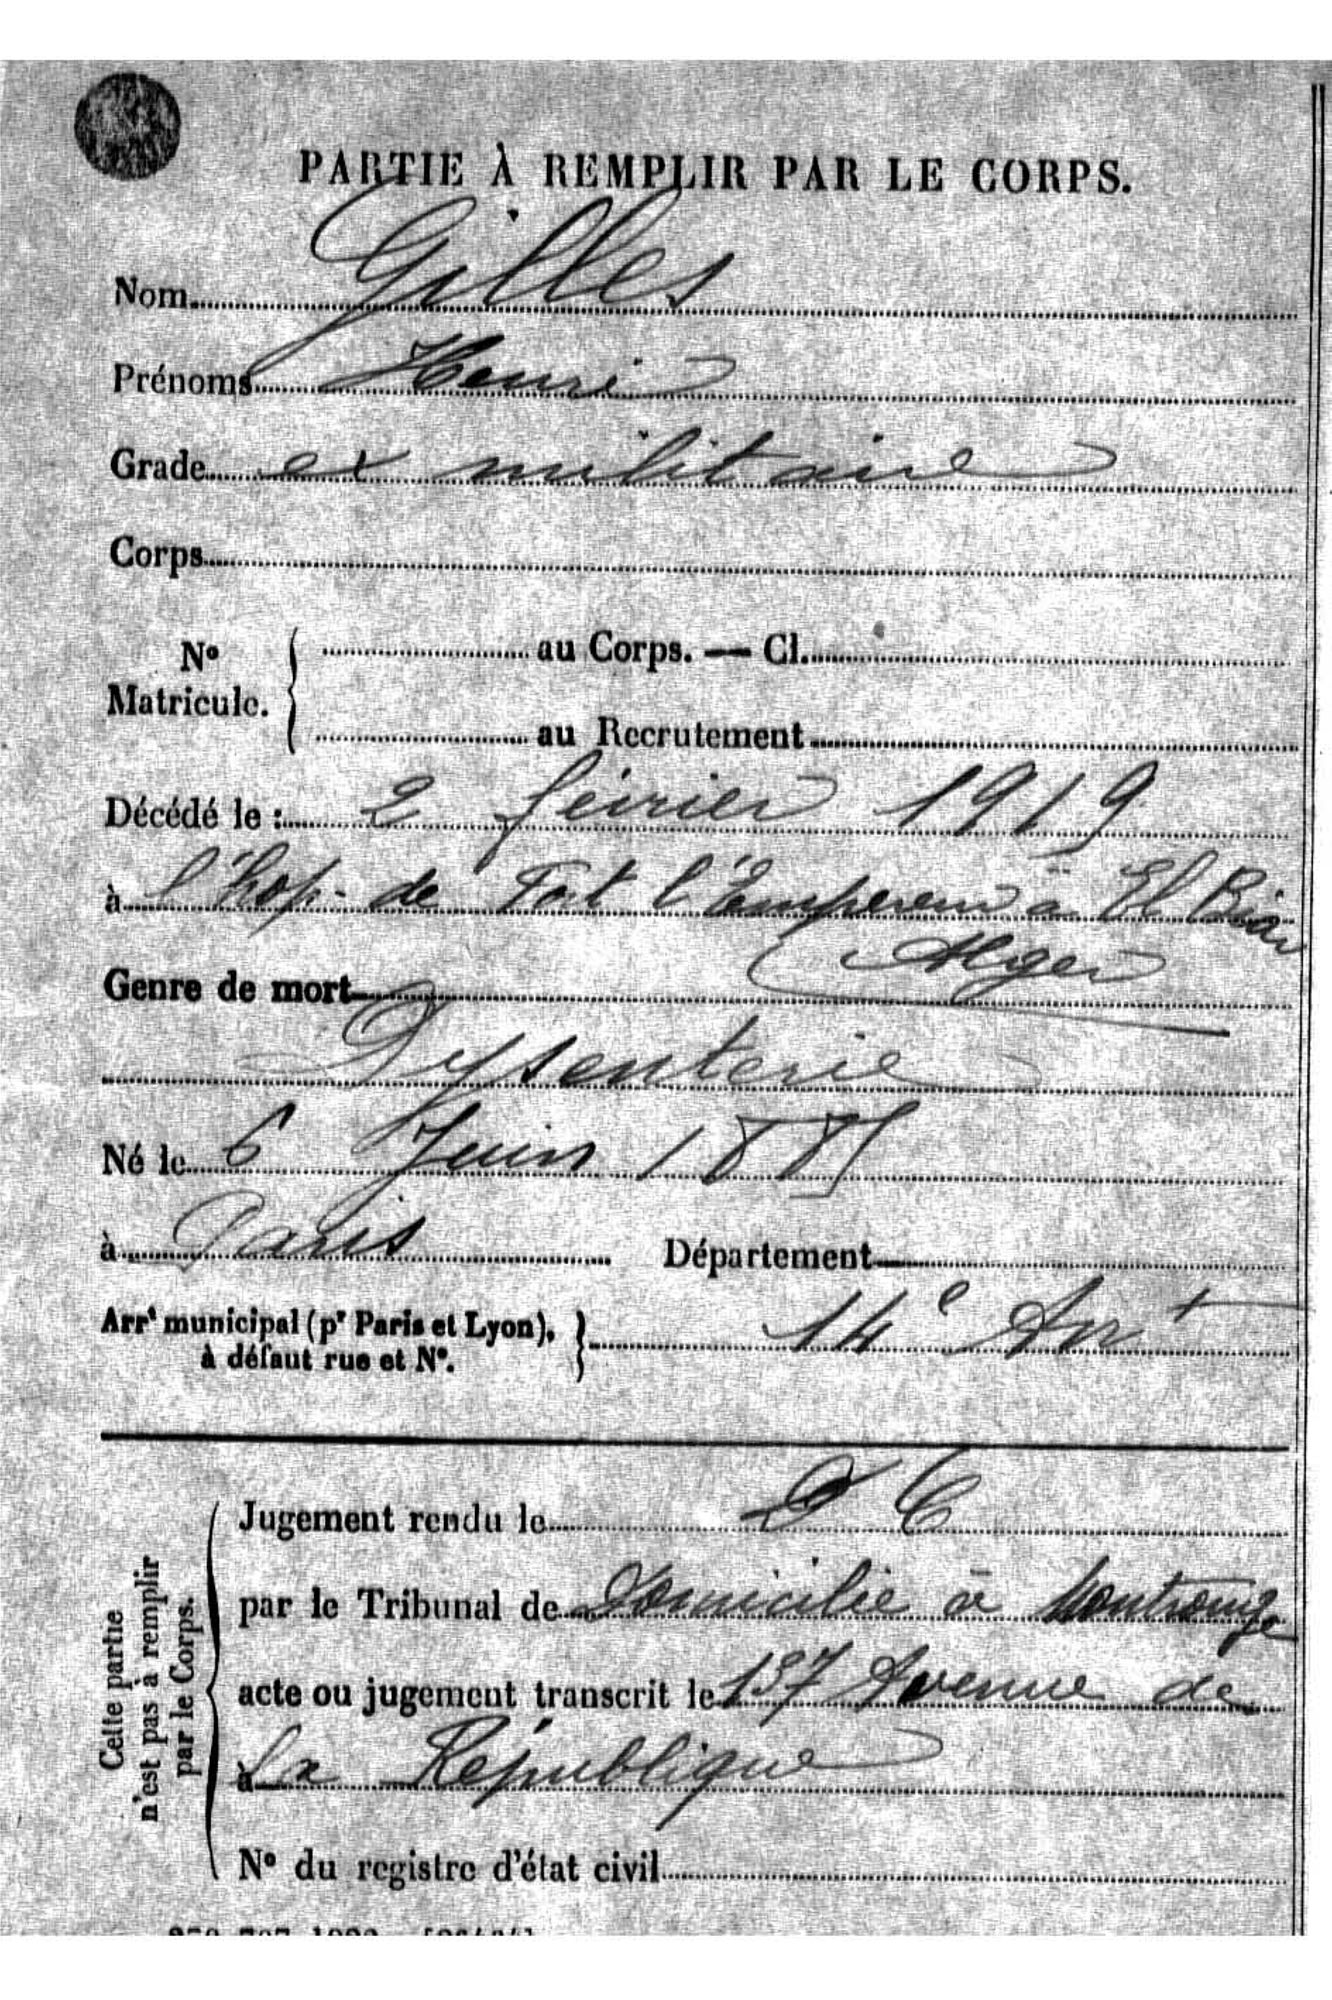 PARTIE À REMPLIR PAR LE CORPS.
Nom Gilles
Prénoms Henri
Grade ex militaire
Corps
No
Matricule.
au Corps. — Cl.
au Recrutement
Décédé le : 2 février 1919
à l'hop. de Fort l'Empereur à El Biar
Alger
Genre de mort
Dysenterie
Né le 6 Juin 1885
à Paris Département
Arrt municipal (pr Paris et Lyon), à défaut rue et No. 14e Arrt
Cette partie n'est pas à remplir par le Corps.
Jugement rendu le
par le Tribunal de Domicilié à Montrouge
acte ou jugement transcrit le 157 Avenue de
à la République
No du registre d'état civil